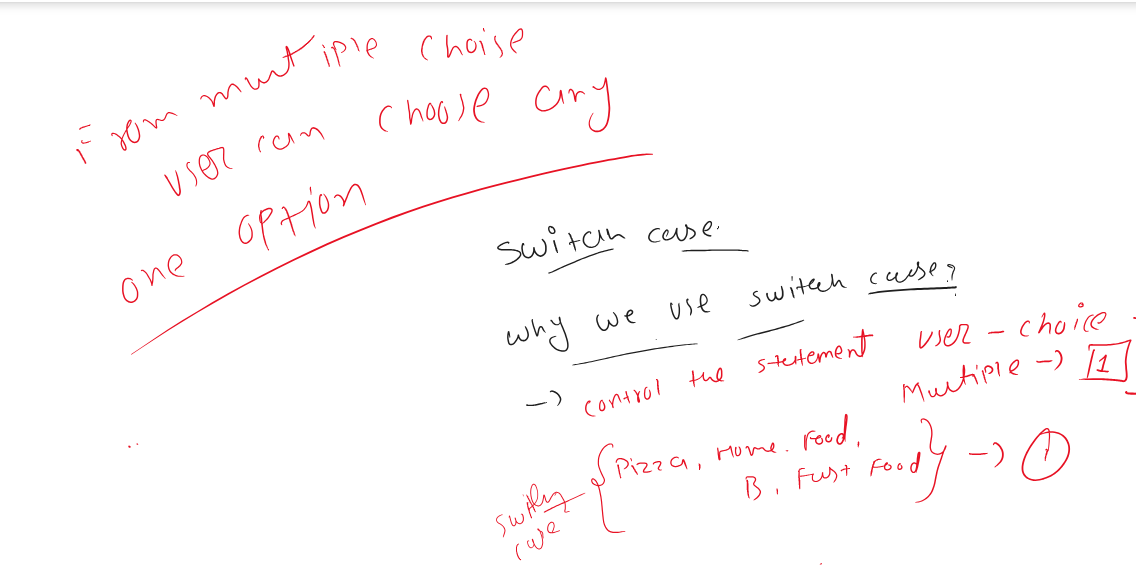 From multiple choise
user can choose any
one option
switch case.
why we use switch case?
-> control the statement user - choice -
Multiple -> 1
switch case { Pizza, Home. Food,
B, Fast Food } -> 1